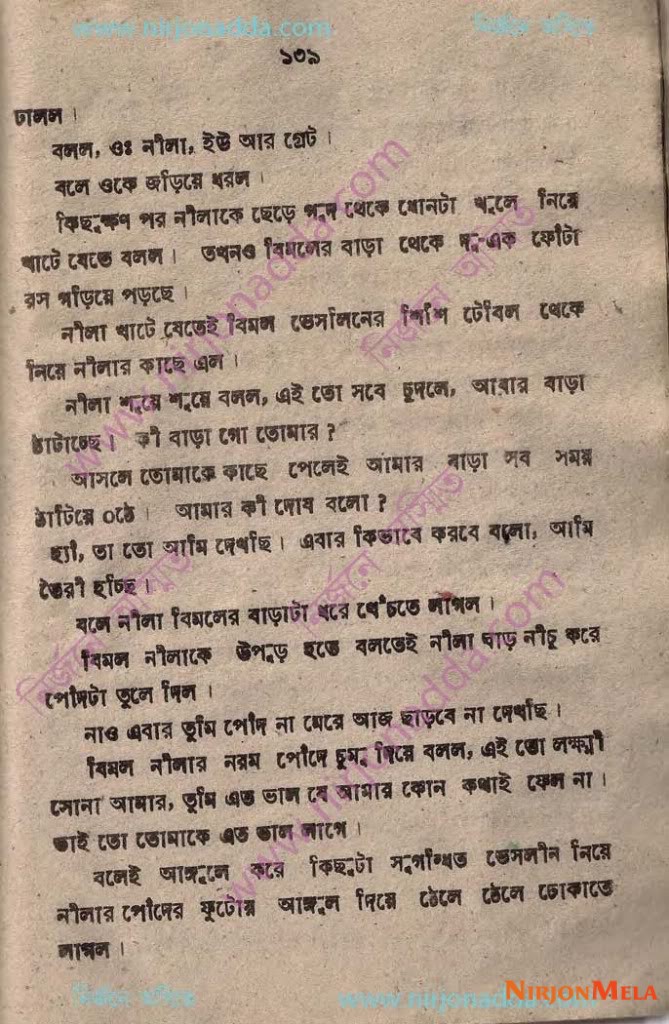 www.nirjonadda.com নির্জনে অসিতে
১৩৯
ঢালল ।
বলল, ওঃ নীলা, ইউ আর গ্রেট ।
বলে ওকে জড়িয়ে ধরল ।
কিছুক্ষণ পর নীলাকে ছেড়ে গুদ থেকে ধোনটা খুলে নিয়ে
খাটে যেতে বলল । তখনও বিমলের বাড়া থেকে দু-এক ফোঁটা
রস গড়িয়ে পড়ছে ।
নীলা খাটে যেতেই বিমল ভেসলিনের শিশি টেবিল থেকে
নিয়ে নীলার কাছে এল ।
নীলা শুয়ে শুয়ে বলল, এই তো সবে চুদলে, আবার বাড়া
ঠাটাচ্ছে । কী বাড়া গো তোমার ?
আসলে তোমাকে কাছে পেলেই আমার বাড়া সব সময়
ঠাটিয়ে ওঠে । আমার কী দোষ বলো ?
হ্যাঁ, তা তো আমি দেখছি । এবার কিভাবে করবে বলো, আমি
তৈরী হচ্ছি ।
বলে নীলা বিমলের বাড়াটা ধরে খেঁচতে লাগল ।
বিমল নীলাকে উপুড় হতে বলতেই নীলা ঘাড় নীচু করে
পোঁদটা তুলে দিল ।
নাও এবার তুমি পোঁদ না মেরে আজ ছাড়বে না দেখছি ।
বিমল নীলার নরম পোঁদে চুমু দিয়ে বলল, এই তো লক্ষ্মী
সোনা আমার, তুমি এত ভাল যে আমার কোন কথাই ফেল না ।
তাই তো তোমাকে এত ভাল লাগে ।
বলেই আঙ্গুলে করে কিছুটা সুগন্ধিত ভেসলীন নিয়ে
নীলার পোঁদের ফুটোয় আঙ্গুল দিয়ে ঠেলে ঠেলে ঢোকাতে
লাগল ।
www.nirjonadda.com
NIRJONMELA